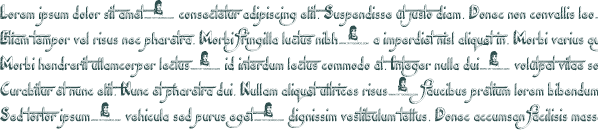 Lorem ipsum dolor sit amet consectetur adipiscing elit. Suspendisse at justo diam. Donec non convallis leo.
Etiam tempor vel risus nec pharetra. Morbi fringilla luctus nibh a imperdiet nisl aliquet in. Morbi varius
Morbi hendrerit ullamcorper lectus id interdum lectus commodo at. Integer nulla dui volutpat vitae
Curabitur et nunc elit. Nunc et pharetra dui. Nullam aliquet ultrices risus faucibus pretium lorem bibendum
Sed tortor ipsum vehicula sed purus eget dignissim vestibulum tellus. Donec accumsan facilisis mass